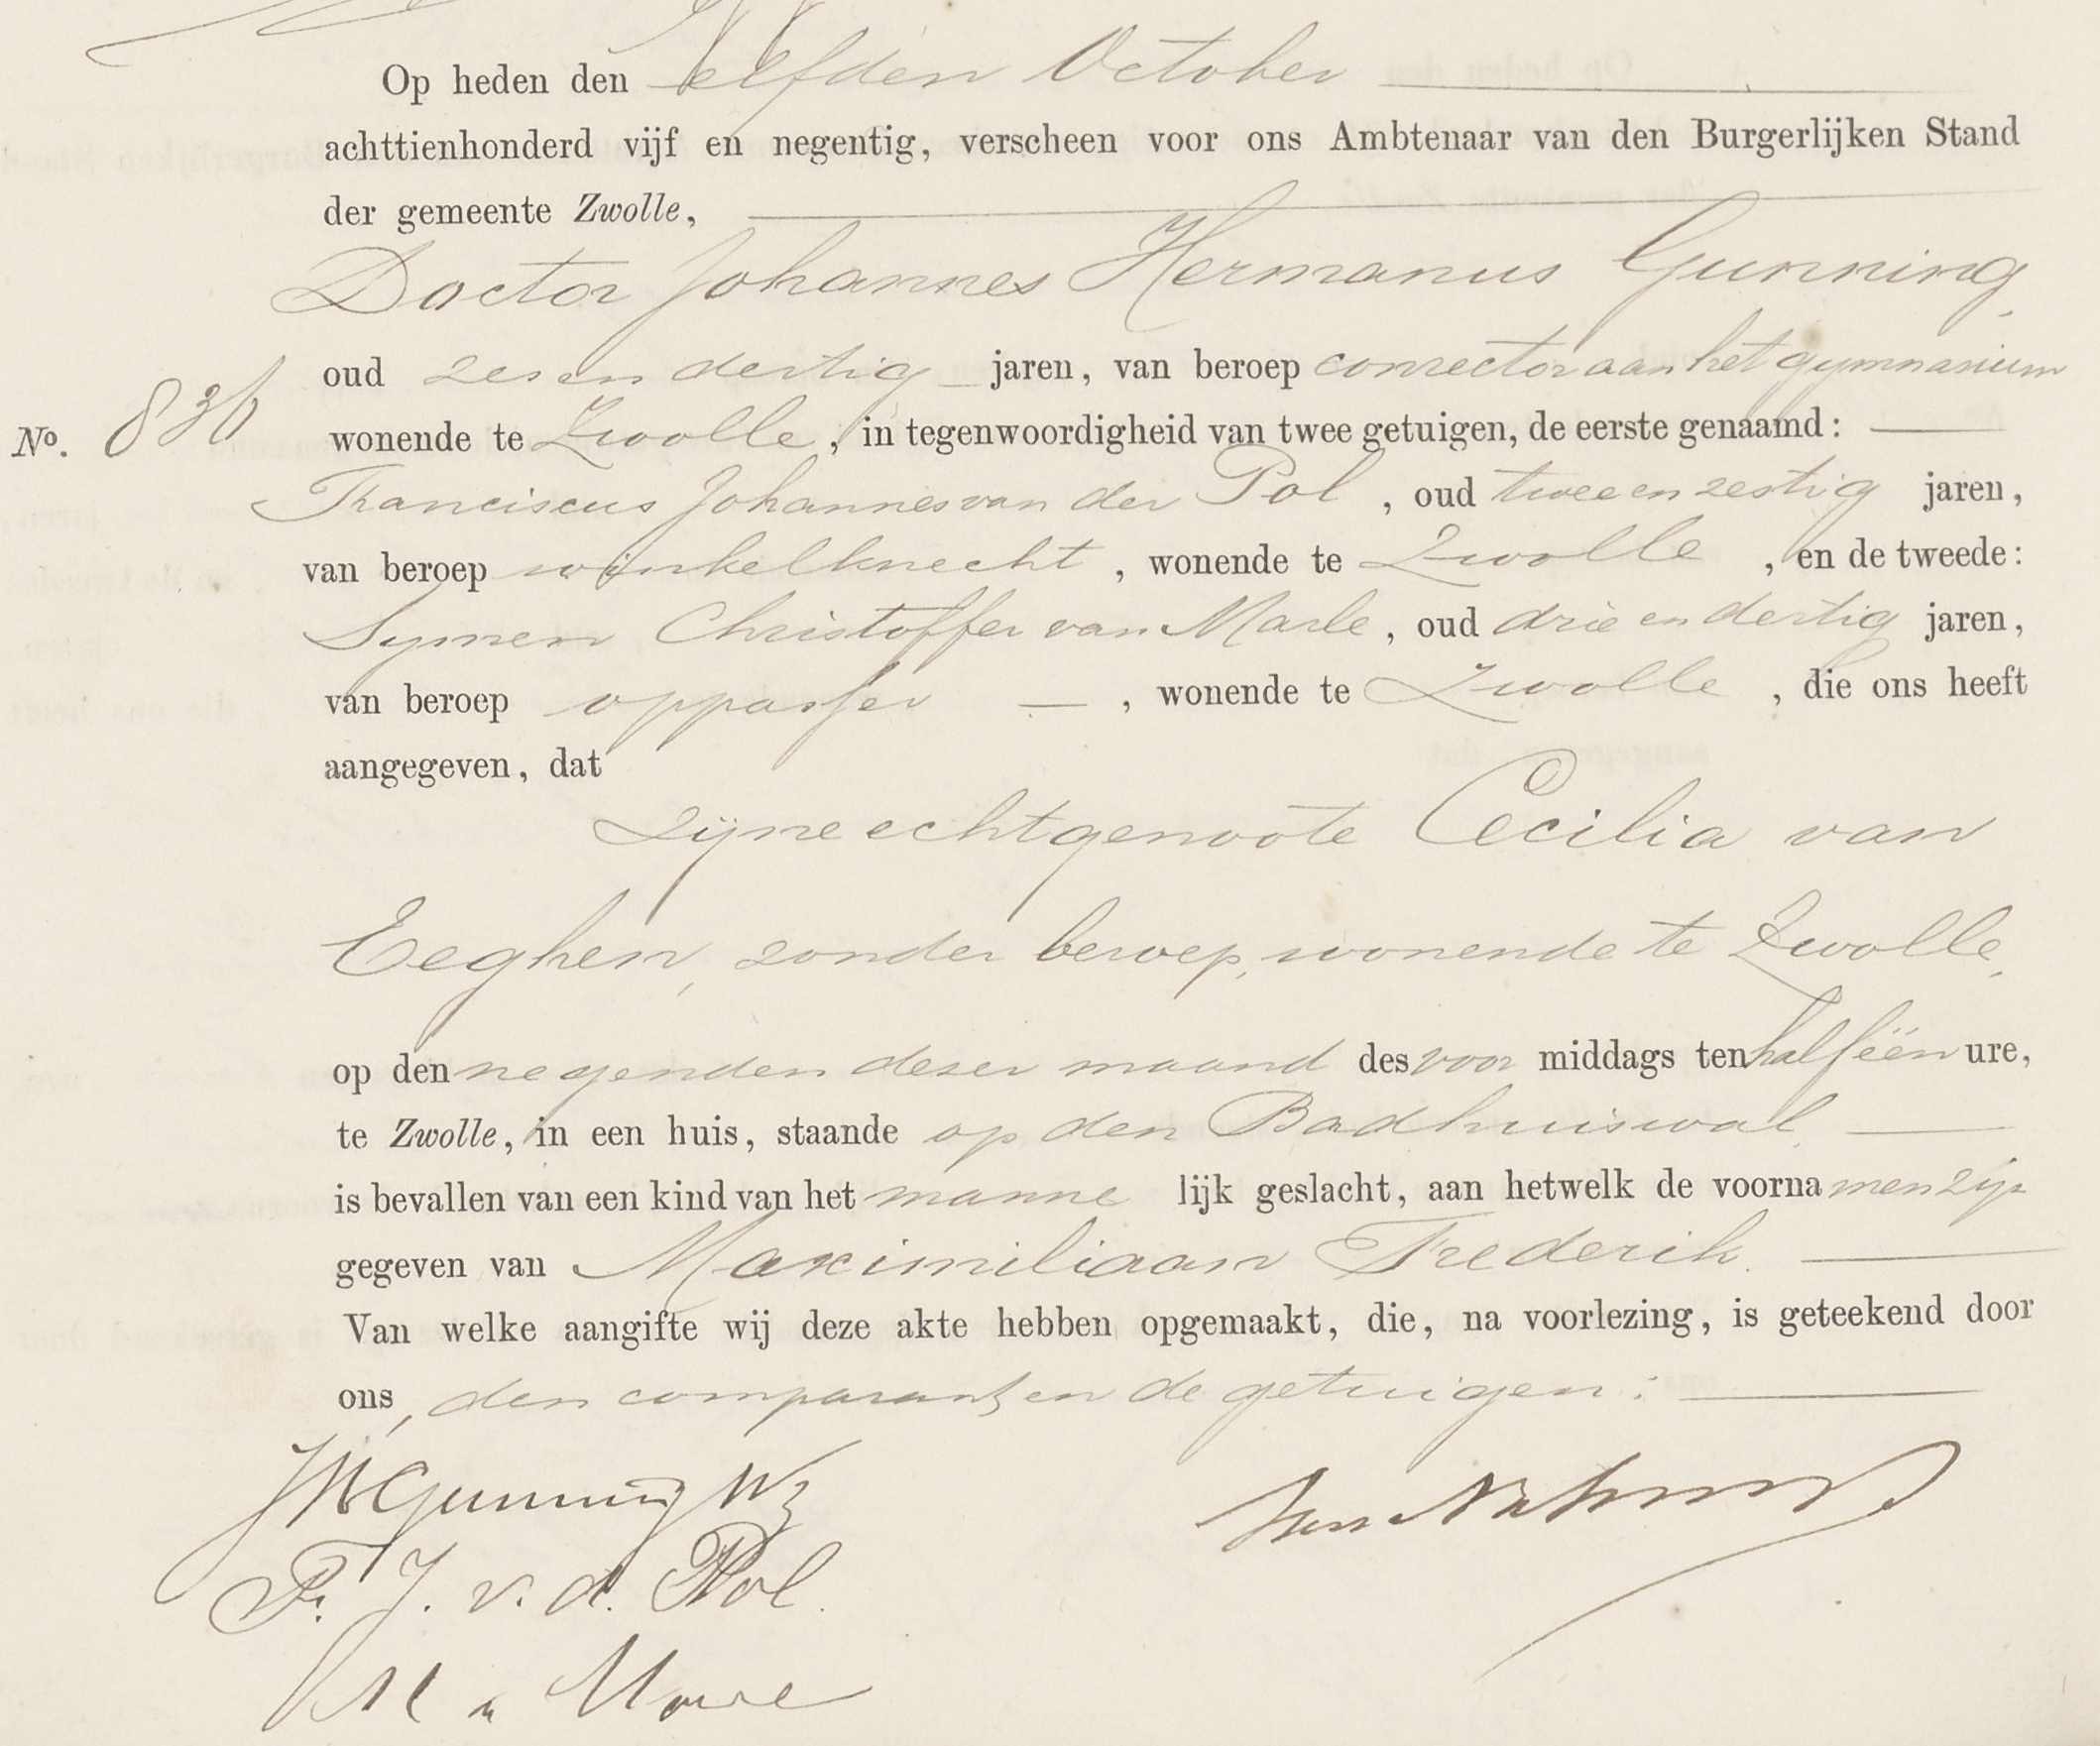 Op heden den elfden October
achttienhonderd vijf en negentig, verscheen voor ons Ambtenaar van den Burgerlijken Stand
der gemeente Zwolle,
Doctor Johannes Hermanus Gunning,
oud zes en dertig jaren, van beroep conrector aan het gymnasium
No. 836 wonende te Zwolle, in tegenwoordigheid van twee getuigen, de eerste genaamd:
Franciscus Johannes van der Pol, oud twee en zestig jaren,
van beroep winkelknecht, wonende te Zwolle, en de tweede:
Symen Christoffer van Marle, oud drie en dertig jaren,
van beroep oppasser, wonende te Zwolle, die ons heeft
aangegeven, dat
zijne echtgenoote Cecilia van
Eeghen, zonder beroep, wonende te Zwolle,
op den negenden dezer maand des voor middags ten half één ure,
te Zwolle, in een huis, staande op den Badhuiswal
is bevallen van een kind van het manne lijk geslacht, aan hetwelk de voorna men zijn
gegeven van Maximiliaan Frederik.
Van welke aangifte wij deze akte hebben opgemaakt, die, na voorlezing, is geteekend door
ons, den comparant en de getuigen:
JHGunning Wz
Fr. J. v. d. Pol.